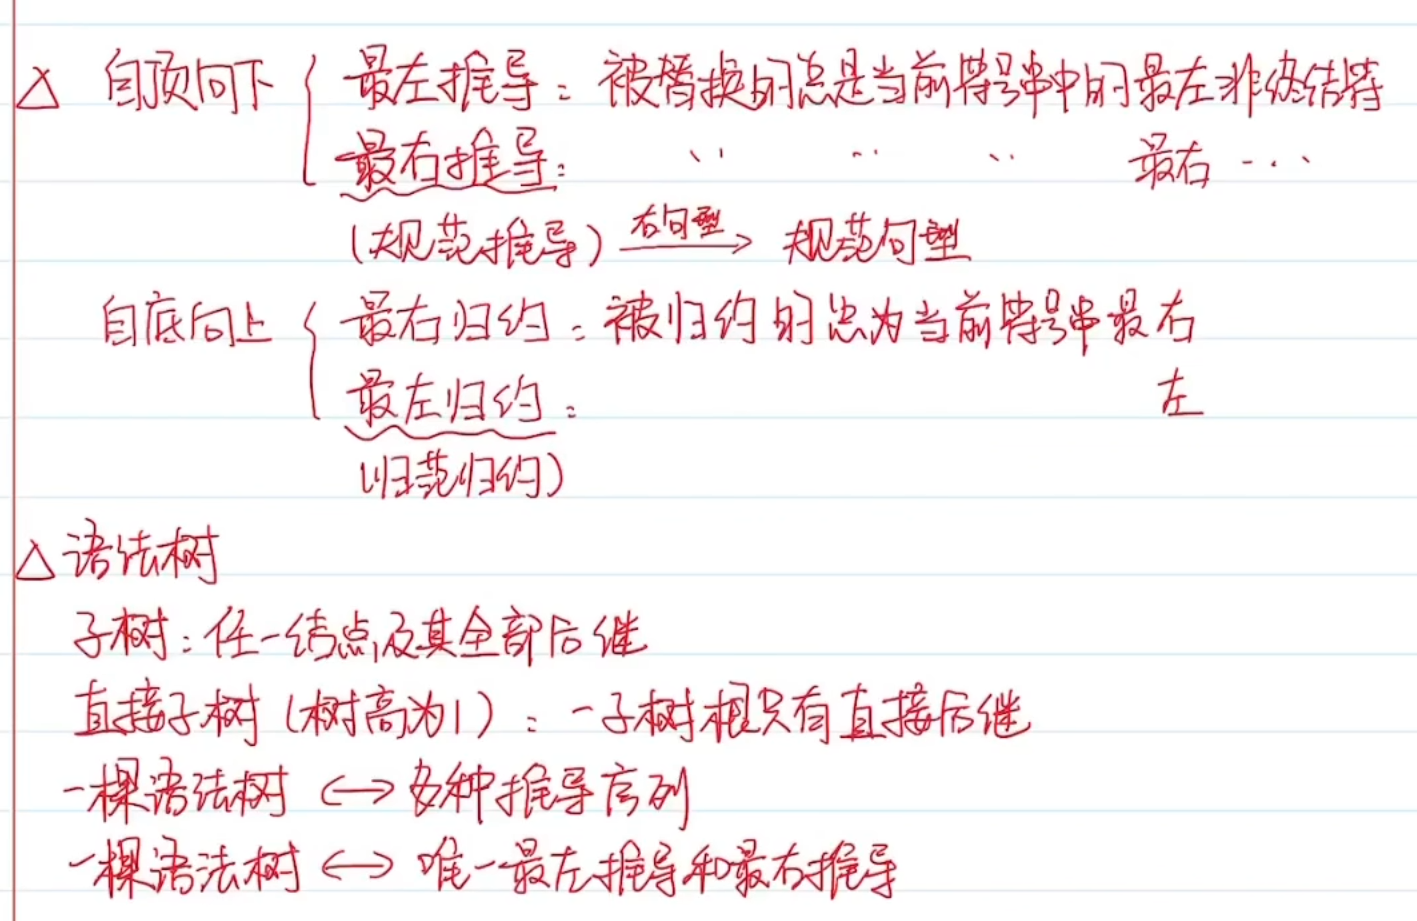 △ 自顶向下 { 最左推导：被替换的总是当前符号串中的最左非终结符
最右推导： 〃 〃 〃 最右 …
(规范推导) 右句型→ 规范句型
自底向上 { 最右归约：被归约的总为当前符号串最右
最左归约： 左
(归范归约)
△ 语法树
子树：任一结点及其全部后继
直接子树 (树高为1)：一子树根只有直接后继
一棵语法树 ↔ 多种推导序列
一棵语法树 ↔ 唯一最左推导和最右推导